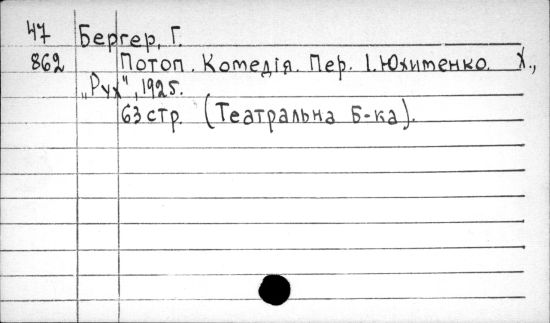 47 Бергер, Г.
862 Потоп. Комедія. Пер. І. Юхименко. Х.,
„Рух", 1925.
63 стр. (Театральна Б-ка).